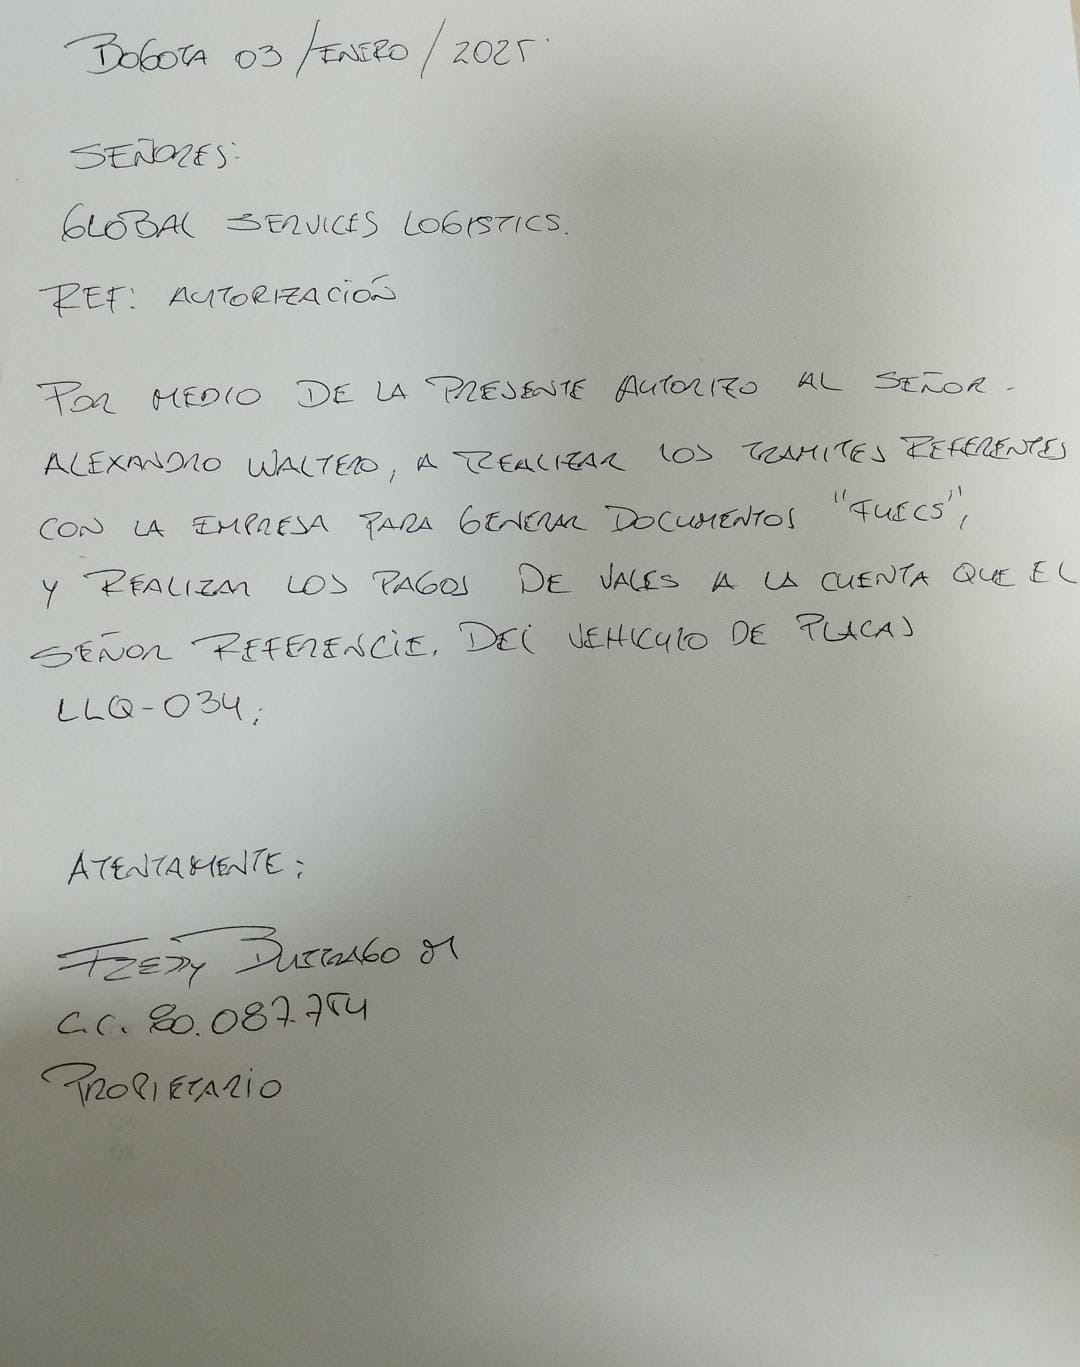 BOGOTA 03 / ENERO / 2025
SEÑORES:
GLOBAL SERVICES LOGISTICS.
REF: AUTORIZACIÓN
POR MEDIO DE LA PRESENTE AUTORIZO AL SEÑOR.
ALEXANDRO WALTERO, A REALIZAR LOS TRAMITES REFERENTES
CON LA EMPRESA PARA GENERAR DOCUMENTOS "FUECS",
Y REALIZAR LOS PAGOS DE VALES A LA CUENTA QUE EL
SEÑOR REFERENCIE. DEL VEHICULO DE PLACAS
LLQ-034;
ATENTAMENTE:
FREDY BUITRAGO
C.C. 80.087.754
PROPIETARIO
OK
OK